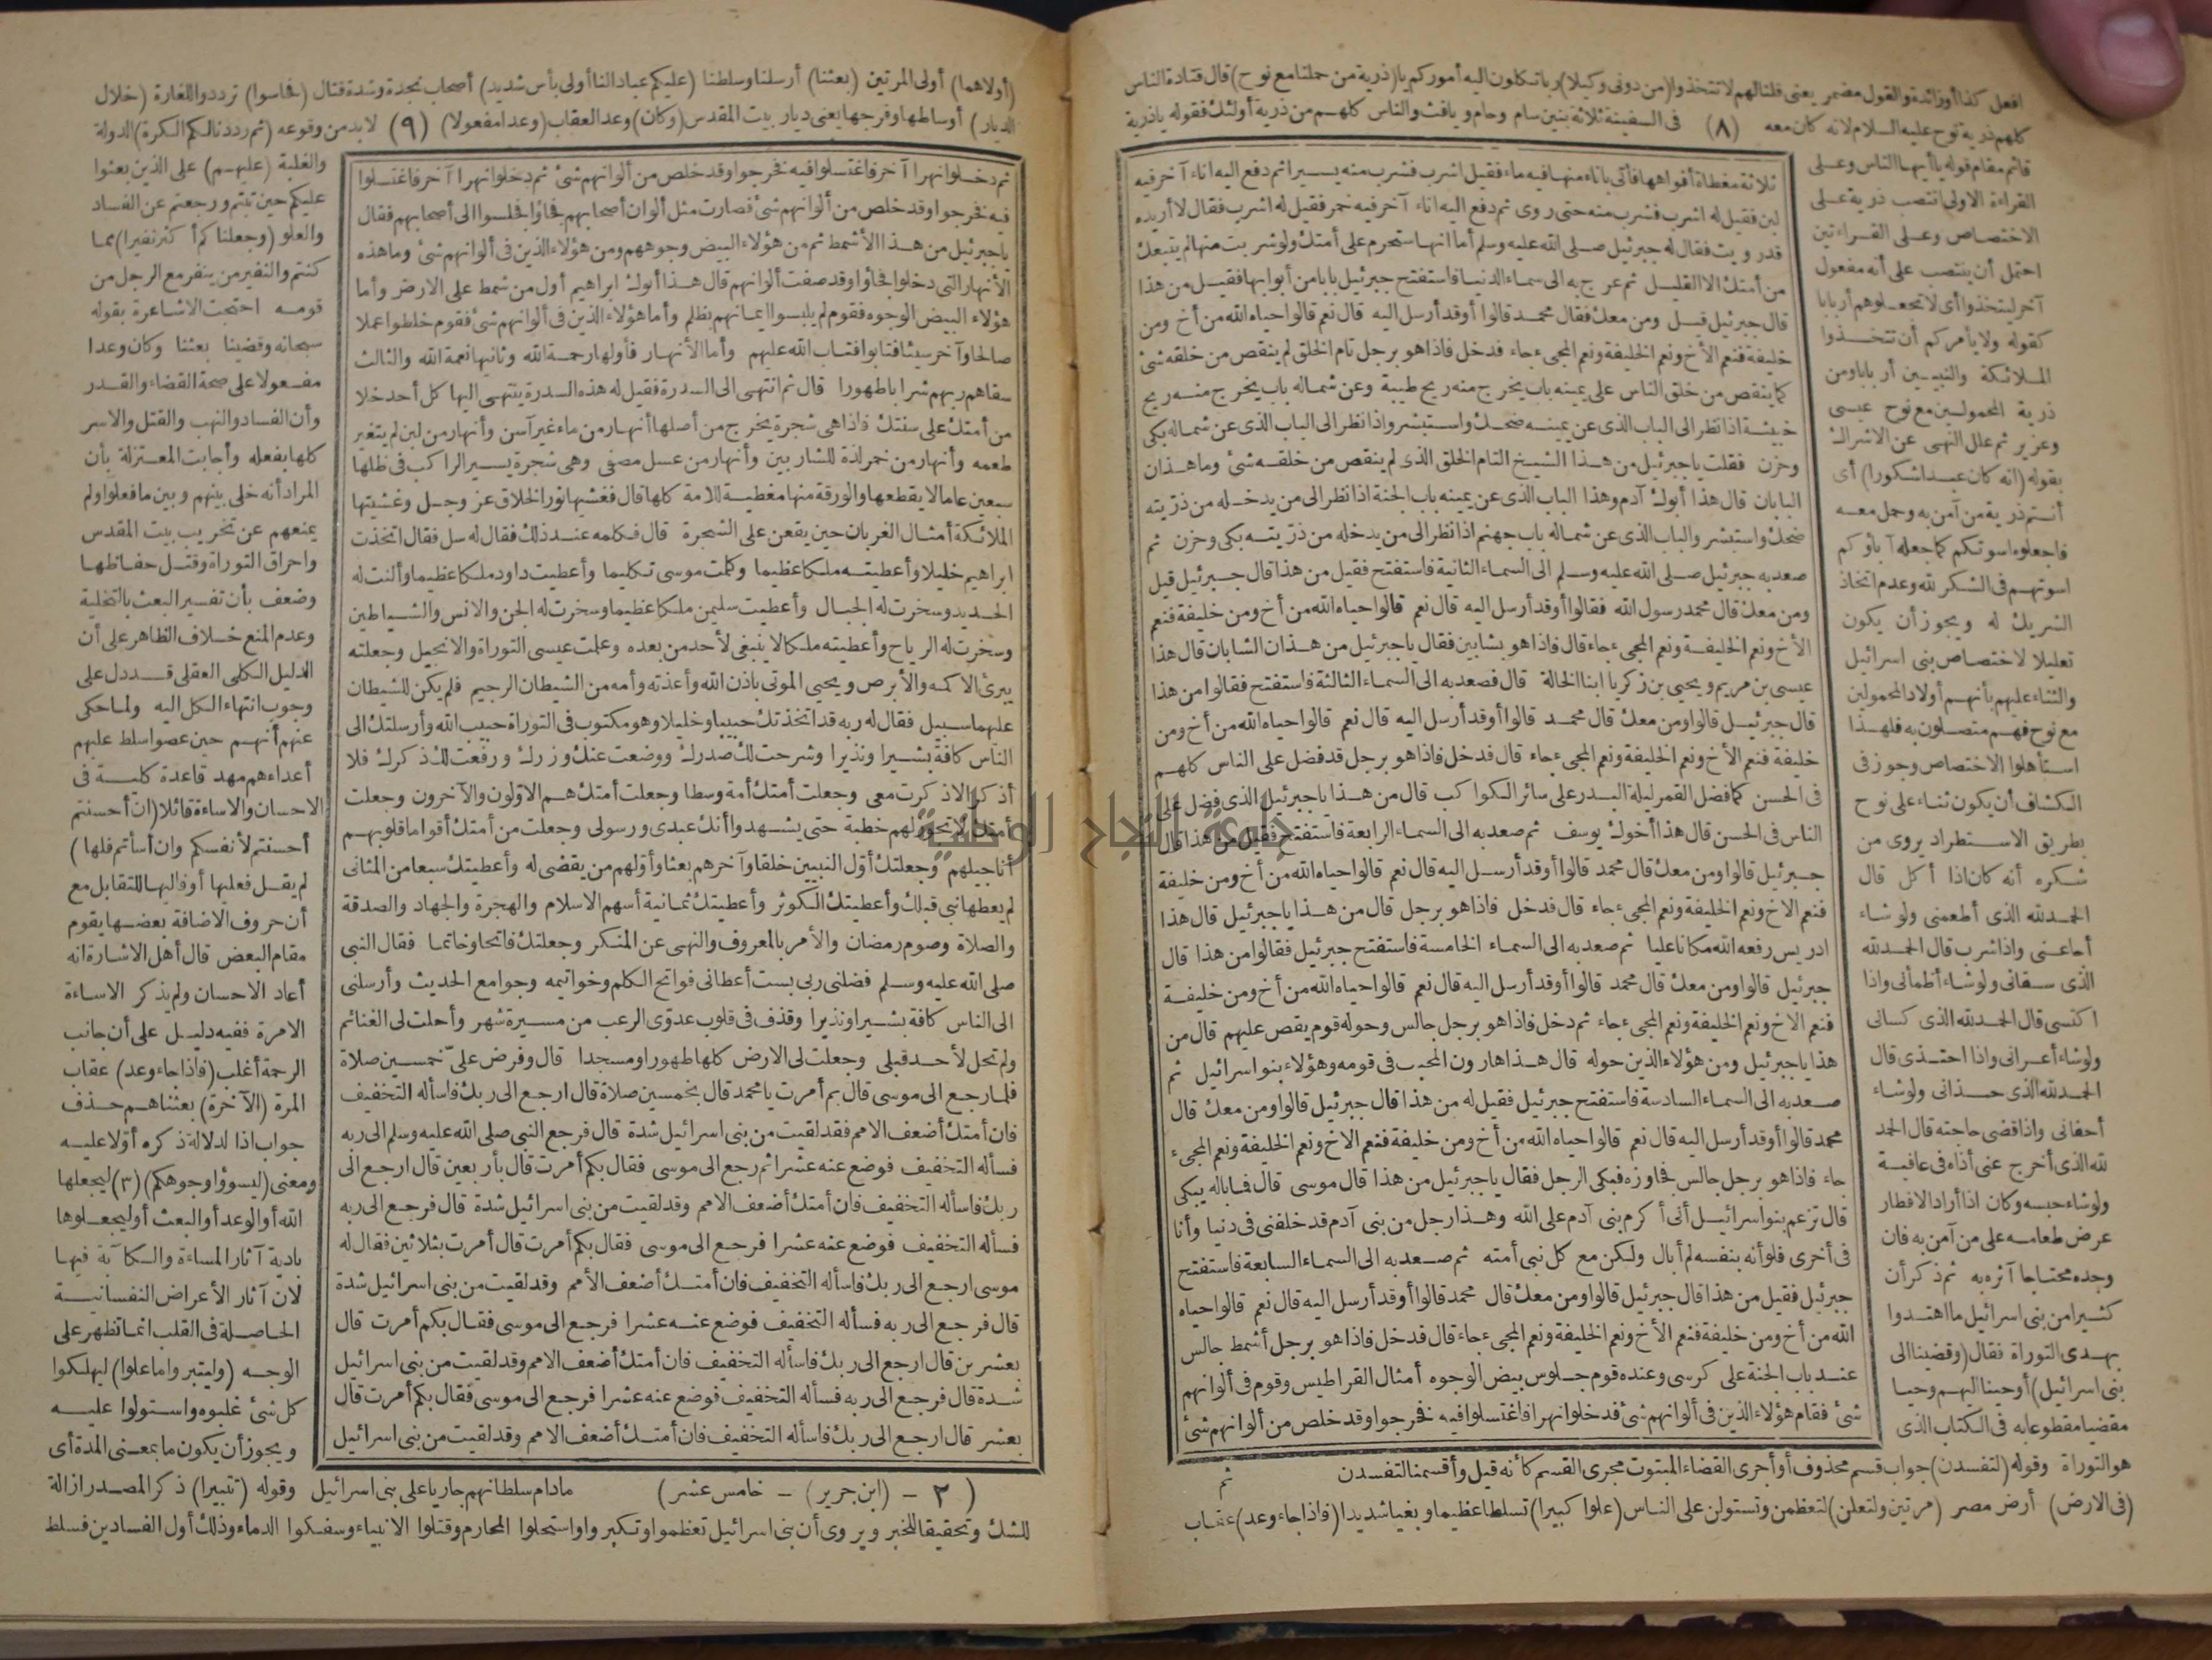 افعل كذا أو زائدة والقول مضمر يعنى قلنا لهم لا تتخذوا (من دونى وكيلا) ربا تكلون اليه أموركم يا (ذرية من حملنا مع نوح) قال قتادة الناس
كلهم ذرية نوح عليه السلام لانه كان معه (٨) فى السفينة ثلاثة بنين سام وحام ويافث والناس كلهم من ذرية أولئك فقوله ياذرية
قائم مقام قوله ياأيها الناس وعلى
القراءة الاولى انتصب ذرية على
الاختصاص وعلى القراءتين
احتمل أن ينتصب على أنه مفعول
آخر ليتخذوا أى لا تجعلوهم أربابا
كقوله ولا يأمركم أن تتخذوا
الملائكة والنبيين أربابا ومن
ذرية المحمولين مع نوح عيسى
وعزير ثم علل النهى عن الاشراك
بقوله (انه كان عبدا شكورا) أى
أنتم ذرية من آمن به وحمل معه
فاجعلوه اسوتكم كما جعله آباؤكم
اسوتهم فى الشكر لله وعدم اتخاذ
الشريك له ويجوز أن يكون
تعليلا لاختصاص بنى اسرائيل
والثناء عليهم بأنهم أولاد المحمولين
مع نوح فهم متصلون به فلهذا
استأهلوا الاختصاص وجوز فى
الكشاف أن يكون ثناء على نوح
بطريق الاستطراد يروى من
شكره أنه كان اذا أكل قال
الحمد لله الذى أطعمنى ولو شاء
أجاعنى واذا شرب قال الحمد لله
الذى سقانى ولو شاء أظمأنى واذا
اكتسى قال الحمد لله الذى كسانى
ولو شاء أعرانى واذا احتذى قال
الحمد لله الذى حذانى ولو شاء
أحفانى واذا قضى حاجته قال الحمد
لله الذى أخرج عنى أذاه فى عافية
ولو شاء حبسه وكان اذا أراد الافطار
عرض طعامه على من آمن به فان
وجده محتاجا آثره به ثم ذكر أن
كثيرا من بنى اسرائيل ما اهتدوا
بهدى التوراة فقال (وقضينا الى
بنى اسرائيل) أوحينا اليهم وحيا
مقضيا مقطوعا به فى الكتاب الذى
هو التوراة وقوله (لتفسدن) جواب قسم محذوف أو أجرى القضاء المبتوت مجرى القسم كأنه قيل وأقسمنا لتفسدن
(فى الارض) أرض مصر (مرتين ولتعلن) لتعظمن وتستولن على الناس (علوا كبيرا) تسلطا عظيما وبغيا شديدا (فاذا جاء وعد) عقاب
ثلاثة مغطاة أفواهها فأتى باناء منها فيه ماء فقيل اشرب فشرب منه يسيرا ثم دفع اليه اناء آخر فيه
لبن فقيل له اشرب فشرب منه حتى روى ثم دفع اليه اناء آخر فيه خمر فقيل له اشرب فقال لا أريده
قد رويت فقال له جبرئيل صلى الله عليه وسلم أما انها ستحرم على أمتك ولو شربت منها لم يتبعك
من أمتك الا القليل ثم عرج به الى سماء الدنيا فاستفتح جبرئيل بابا من أبوابها فقيل من هذا
قال جبرئيل قيل ومن معك فقال محمد قالوا أوقد أرسل اليه قال نعم قالوا حياه الله من أخ ومن
خليفة فنعم الأخ ونعم الخليفة ونعم المجىء جاء فدخل فاذا هو برجل تام الخلق لم ينقص من خلقه شئ
كما ينقص من خلق الناس على يمينه باب يخرج منه ريح طيبة وعن شماله باب يخرج منه ريح
خبيثة اذا نظر الى الباب الذى عن يمينه ضحك واستبشر واذا نظر الى الباب الذى عن شماله بكى
وحزن فقلت يا جبرئيل من هذا الشيخ التام الخلق الذى لم ينقص من خلقه شئ وما هذان
البابان قال هذا أبوك آدم وهذا الباب الذى عن يمينه باب الجنة اذا نظر الى من يدخله من ذريته
ضحك واستبشر والباب الذى عن شماله باب جهنم اذا نظر الى من يدخله من ذريته بكى وحزن ثم
صعد به جبرئيل صلى الله عليه وسلم الى السماء الثانية فاستفتح فقيل من هذا قال جبرئيل قيل
ومن معك قال محمد رسول الله فقالوا أوقد أرسل اليه قال نعم قالوا حياه الله من أخ ومن خليفة فنعم
الأخ ونعم الخليفة ونعم المجىء جاء قال فاذا هو بشابين فقال يا جبرئيل من هذان الشابان قال هذا
عيسى بن مريم ويحيى بن زكريا ابنا الخالة قال فصعد به الى السماء الثالثة فاستفتح فقالوا من هذا
قال جبرئيل قالوا ومن معك قال محمد قالوا أوقد أرسل اليه قال نعم قالوا حياه الله من أخ ومن
خليفة فنعم الأخ ونعم الخليفة ونعم المجىء جاء قال فدخل فاذا هو برجل قد فضل على الناس كلهم
فى الحسن كما فضل القمر ليلة البدر على سائر الكواكب قال من هذا يا جبرئيل الذى فضل على
الناس فى الحسن قال هذا أخوك يوسف ثم صعد به الى السماء الرابعة فاستفتح فقيل من هذا قال
جبرئيل قالوا ومن معك قال محمد قالوا أوقد أرسل اليه قال نعم قالوا حياه الله من أخ ومن خليفة
فنعم الاخ ونعم الخليفة ونعم المجىء جاء قال فدخل فاذا هو برجل قال من هذا يا جبرئيل قال هذا
ادريس رفعه الله مكانا عليا ثم صعد به الى السماء الخامسة فاستفتح جبرئيل فقالوا من هذا قال
جبرئيل قالوا ومن معك قال محمد قالوا أوقد أرسل اليه قال نعم قالوا حياه الله من أخ ومن خليفة
فنعم الاخ ونعم الخليفة ونعم المجىء جاء ثم دخل فاذا هو برجل جالس وحوله قوم يقص عليهم قال من
هذا يا جبرئيل ومن هؤلاء الذين حوله قال هذا هارون المحبب فى قومه وهؤلاء بنو اسرائيل ثم
صعد به الى السماء السادسة فاستفتح جبرئيل فقيل له من هذا قال جبرئيل قالوا ومن معك قال
محمد قالوا أوقد أرسل اليه قال نعم قالوا حياه الله من أخ ومن خليفة فنعم الاخ ونعم الخليفة ونعم المجىء
جاء فاذا هو برجل جالس فجاوزه فبكى الرجل فقال يا جبرئيل من هذا قال موسى قال فما باله يبكى
قال تزعم بنو اسرائيل أنى أكرم بنى آدم على الله وهذا رجل من بنى آدم قد خلفنى فى دنيا وأنا
فى أخرى فلو أنه بنفسه لم أبال ولكن مع كل نبى أمته ثم صعد به الى السماء السابعة فاستفتح
جبرئيل فقيل من هذا قال جبرئيل قالوا ومن معك قال محمد قالوا أوقد أرسل اليه قال نعم قالوا حياه
الله من أخ ومن خليفة فنعم الأخ ونعم الخليفة ونعم المجىء جاء قال فدخل فاذا هو برجل أشمط جالس
عند باب الجنة على كرسى وعنده قوم جلوس بيض الوجوه أمثال القراطيس وقوم فى ألوانهم
شئ فقام هؤلاء الذين فى ألوانهم شئ فدخلوا نهرا فاغتسلوا فيه فخرجوا وقد خلص من ألوانهم شئ
ثم
(أولاهما) أولى المرتين (بعثنا) أرسلنا وسلطنا (عليكم عبادا لنا أولى بأس شديد) أصحاب نجدة وشدة قتال (فجاسوا) ترددوا للغارة (خلال
الديار) أوساطها وفرجها يعنى ديار بيت المقدس (وكان) وعد العقاب (وعدا مفعولا) (٩) لابد من وقوعه (ثم رددنا لكم الكرة) الدولة
ثم دخلوا نهرا آخر فاغتسلوا فيه فخرجوا وقد خلص من ألوانهم شئ ثم دخلوا نهرا آخر فاغتسلوا
فيه فخرجوا وقد خلص من ألوانهم شئ فصارت مثل ألوان أصحابهم فجاؤا فجلسوا الى أصحابهم فقال
يا جبرئيل من هذا الأشمط ثم من هؤلاء البيض وجوههم ومن هؤلاء الذين فى ألوانهم شئ وما هذه
الأنهار التى دخلوا فجاؤا وقد صفت ألوانهم قال هذا أبوك ابراهيم أول من شمط على الارض وأما
هؤلاء البيض الوجوه فقوم لم يلبسوا ايمانهم بظلم وأما هؤلاء الذين فى ألوانهم شئ فقوم خلطوا عملا
صالحا وآخر سيئا فتابوا فتاب الله عليهم وأما الأنهار فأولها رحمة الله وثانيها نعمة الله والثالث
سقاهم ربهم شرابا طهورا قال ثم انتهى الى السدرة فقيل له هذه السدرة ينتهى اليها كل أحد خلا
من أمتك على سنتك فاذا هى شجرة يخرج من أصلها أنهار من ماء غير آسن وأنهار من لبن لم يتغير
طعمه وأنهار من خمر لذة للشاربين وأنهار من عسل مصفى وهى شجرة يسير الراكب فى ظلها
سبعين عاما لا يقطعها والورقة منها مغطية للامة كلها قال فغشيها نور الخلاق عز وجل وغشيتها
الملائكة أمثال الغربان حين يقعن على الشجرة قال فكلمه عند ذلك فقال له سل فقال اتخذت
ابراهيم خليلا وأعطيته ملكا عظيما وكلمت موسى تكليما وأعطيت داود ملكا عظيما وألنت له
الحديد وسخرت له الجبال وأعطيت سليمن ملكا عظيما وسخرت له الجن والانس والشياطين
وسخرت له الرياح وأعطيته ملكا لا ينبغى لأحد من بعده وعلمت عيسى التوراة والانجيل وجعلته
يبرئ الاكمه والأبرص ويحيى الموتى باذن الله وأعذته وأمه من الشيطان الرجيم فلم يكن للشيطان
عليهما سبيل فقال له ربه قد اتخذتك حبيبا وخليلا وهو مكتوب فى التوراة حبيب الله وأرسلتك الى
الناس كافة بشيرا ونذيرا وشرحت لك صدرك ووضعت عنك وزرك ورفعت لك ذكرك فلا
أذكر الا ذكرت معى وجعلت أمتك أمة وسطا وجعلت أمتك هم الاولون والآخرون وجعلت
أمتك لا تجوز لهم خطبة حتى يشهدوا أنك عبدى ورسولى وجعلت من أمتك أقواما قلوبهم
أناجيلهم وجعلتك أول النبيين خلقا وآخرهم بعثا وأولهم من يقضى له وأعطيتك سبعا من المثانى
لم يعطها نبى قبلك وأعطيتك الكوثر وأعطيتك ثمانية أسهم الاسلام والهجرة والجهاد والصدقة
والصلاة وصوم رمضان والأمر بالمعروف والنهى عن المنكر وجعلتك فاتحا وخاتما فقال النبى
صلى الله عليه وسلم فضلنى ربى بست أعطانى فواتح الكلم وخواتيمه وجوامع الحديث وأرسلنى
الى الناس كافة بشيرا ونذيرا وقذف فى قلوب عدوى الرعب من مسيرة شهر وأحلت لى الغنائم
ولم تحل لأحد قبلى وجعلت لى الارض كلها طهورا ومسجدا قال وفرض على خمسين صلاة
فلما رجع الى موسى قال بم أمرت يا محمد قال بخمسين صلاة قال ارجع الى ربك فاسأله التخفيف
فان أمتك أضعف الامم فقد لقيت من بنى اسرائيل شدة قال فرجع النبى صلى الله عليه وسلم الى ربه
فسأله التخفيف فوضع عنه عشرا ثم رجع الى موسى فقال بكم أمرت قال بأربعين قال ارجع الى
ربك فاسأله التخفيف فان أمتك أضعف الامم وقد لقيت من بنى اسرائيل شدة قال فرجع الى ربه
فسأله التخفيف فوضع عنه عشرا فرجع الى موسى فقال بكم أمرت قال أمرت بثلاثين فقال له
موسى ارجع الى ربك فاسأله التخفيف فان أمتك أضعف الأمم وقد لقيت من بنى اسرائيل شدة
قال فرجع الى ربه فسأله التخفيف فوضع عنه عشرا فرجع الى موسى فقال بكم أمرت قال
بعشرين قال ارجع الى ربك فاسأله التخفيف فان أمتك أضعف الامم وقد لقيت من بنى اسرائيل
شدة قال فرجع الى ربه فسأله التخفيف فوضع عنه عشرا فرجع الى موسى فقال بكم أمرت قال
بعشر قال ارجع الى ربك فاسأله التخفيف فان أمتك أضعف الامم وقد لقيت من بنى اسرائيل
والغلبة (عليهم) على الذين بعثوا
عليكم حين تبتم ورجعتم عن الفساد
والعلو (وجعلناكم أكثر نفيرا) مما
كنتم والنفير من ينفر مع الرجل من
قومه احتجت الاشاعرة بقوله
سبحانه وقضينا بعثنا وكان وعدا
مفعولا على صحة القضاء والقدر
وأن الفساد والنهب والقتل والاسر
كلها بفعله وأجابت المعتزلة بأن
المراد أنه خلى بينهم وبين ما فعلوا ولم
يمنعهم عن تخريب بيت المقدس
واحراق التوراة وقتل حفاظها
وضعف بأن تفسير البعث بالتخلية
وعدم المنع خلاف الظاهر على أن
الدليل الكلى العقلى قد دل على
وجوب انتهاء الكل اليه ولما حكى
عنهم أنهم حين عصوا سلط عليهم
أعداءهم مهد قاعدة كلية فى
الاحسان والاساءة قائلا (ان أحسنتم
أحسنتم لأنفسكم وان أسأتم فلها)
لم يقل فعليها أو فاليها للتقابل مع
أن حروف الاضافة بعضها يقوم
مقام البعض قال أهل الاشارة انه
أعاد الاحسان ولم يذكر الاساءة
الا مرة ففيه دليل على أن جانب
الرحمة أغلب (فاذا جاء وعد) عقاب
المرة (الآخرة) بعثناهم حذف
جواب اذا لدلالة ذكره أولا عليه
ومعنى (ليسوؤا وجوهكم) (٣) ليجعلها
الله أو الوعد أو البعث أو ليجعلوها
بادية آثار المساءة والكآبة فيها
لأن آثار الأعراض النفسانية
الحاصلة فى القلب انما تظهر على
الوجه (وليتبروا ما علوا) ليهلكوا
كل شئ غلبوه واستولوا عليه
ويجوز أن يكون ما بمعنى المدة أى
(٢ - (ابن جرير) - خامس عشر) مادام سلطانهم جاريا على بنى اسرائيل وقوله (تتبيرا) ذكر المصدر ازالة
للشك وتحقيقا للخبر ويروى أن بنى اسرائيل تعظموا وتكبروا واستحلوا المحارم وقتلوا الانبياء وسفكوا الدماء وذلك أول الفسادين فسلط
جامعة النجاح الوطنية